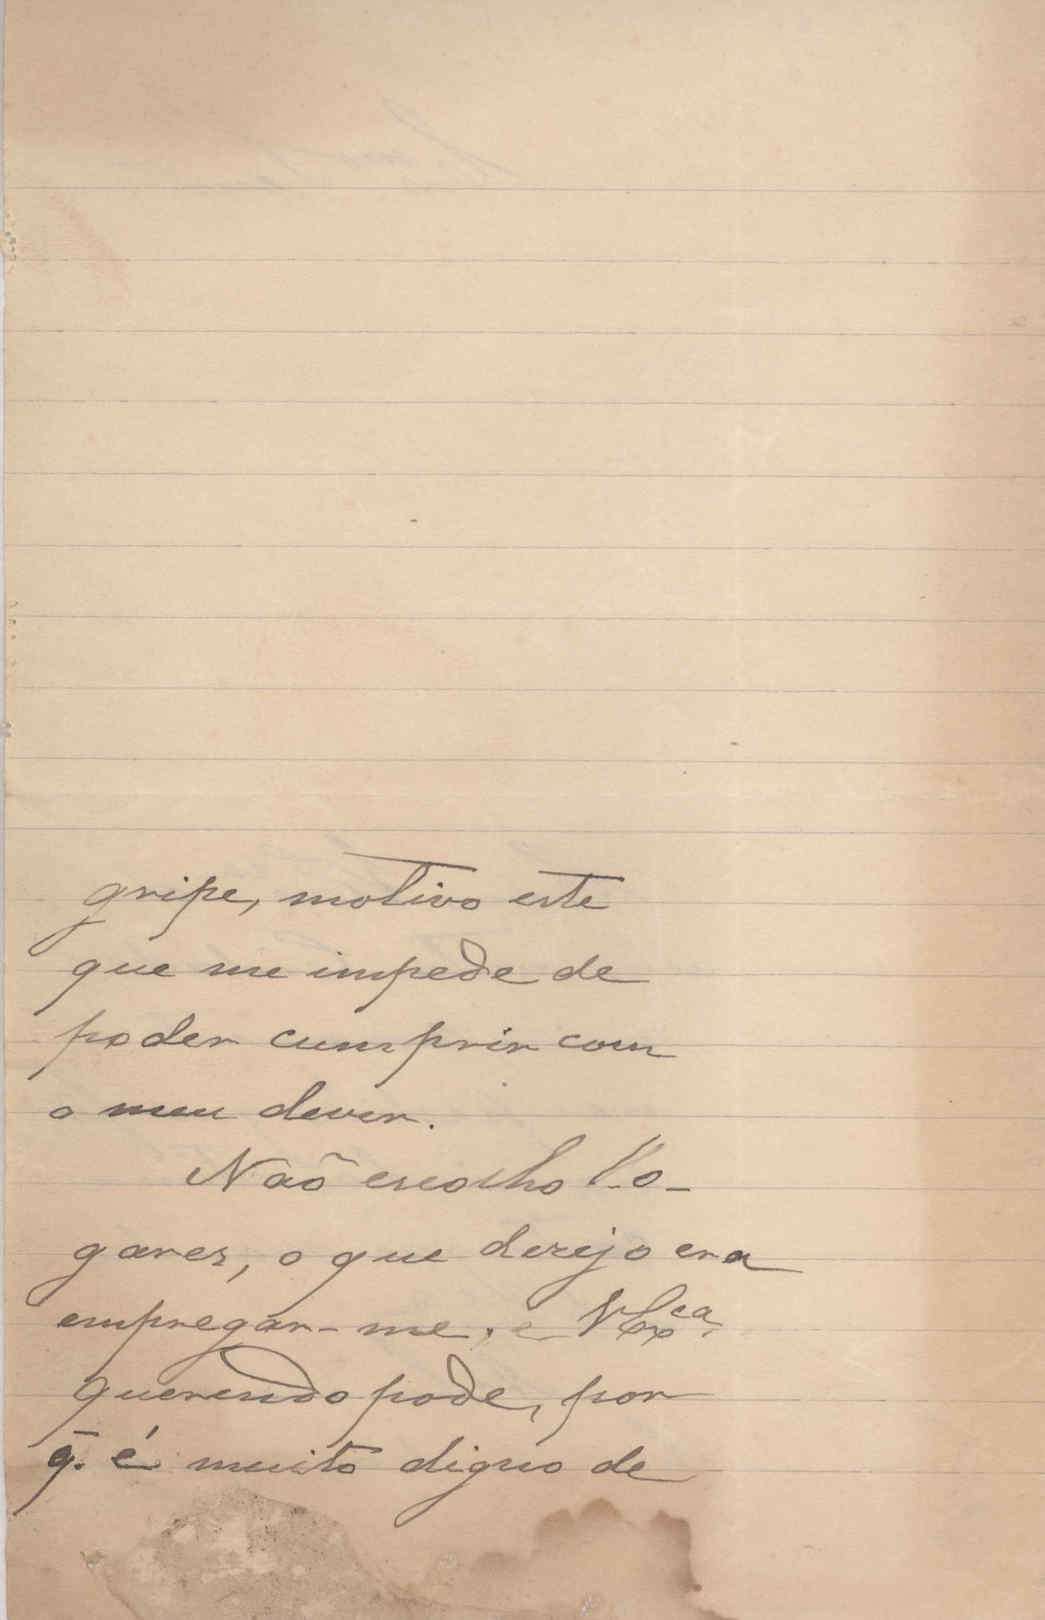 gripe, motivo este
que me impede de
poder cumprir com
o meu dever.
Naõ escolho lo-
gares, o que dezejo era
empregar-me, e VEx.ca
querendo pode, por
q̄. é muito digno de